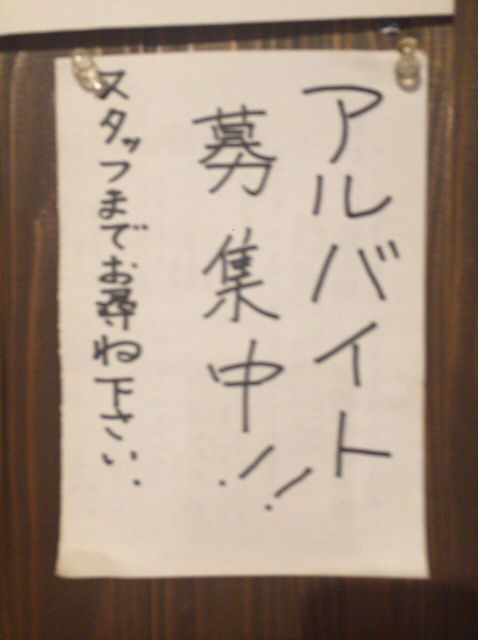 アルバイト
募集中!!
スタッフまでお尋ね下さい.